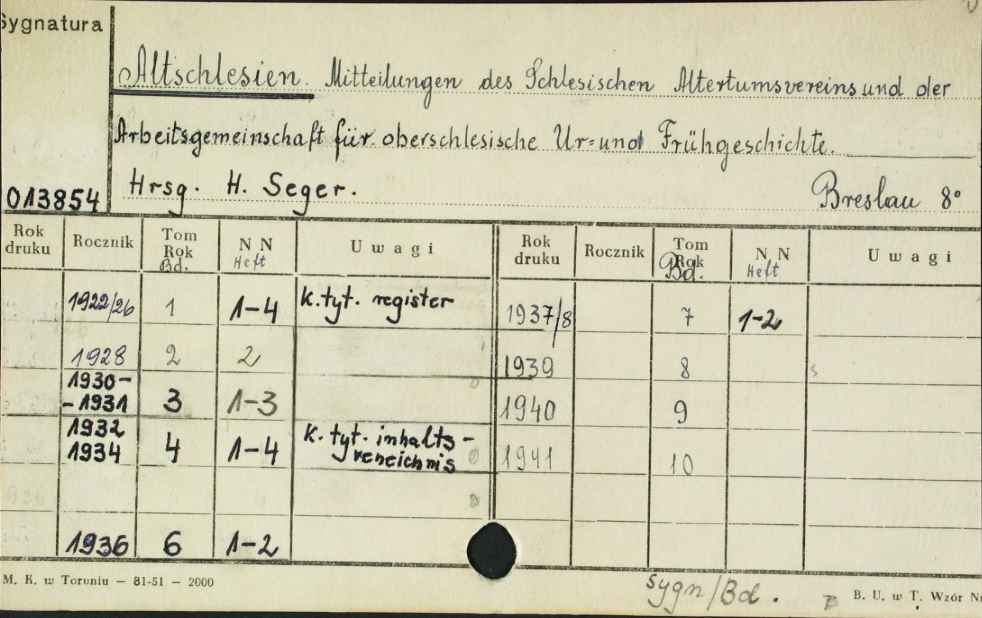 Sygnatura
Altschlesien. Mitteilungen des Schlesischen Altertumsvereins und der
Arbeitsgemeinschaft für oberschlesische Ur=und Frühgeschichte.
Hrsg. H. Seger. Breslau 8°
013854
Rok druku Rocznik Tom Rok Bd. N N Heft Uwagi Rok druku Rocznik Tom Rok Bd. N N Heft Uwagi
1922/26 1 1-4 K.tyt. register 1937/8 7 1-2
1928 2 2 1939 8
1930-
-1931 3 1-3 1940 9
1932
1934 4 1-4 K. tyt. inhalts-
1941 10
1936 6 1-2
M. K. w Toruniu — 81-51 — 2000
Sygn/Bd.
B. U. w T. Wzór Nr